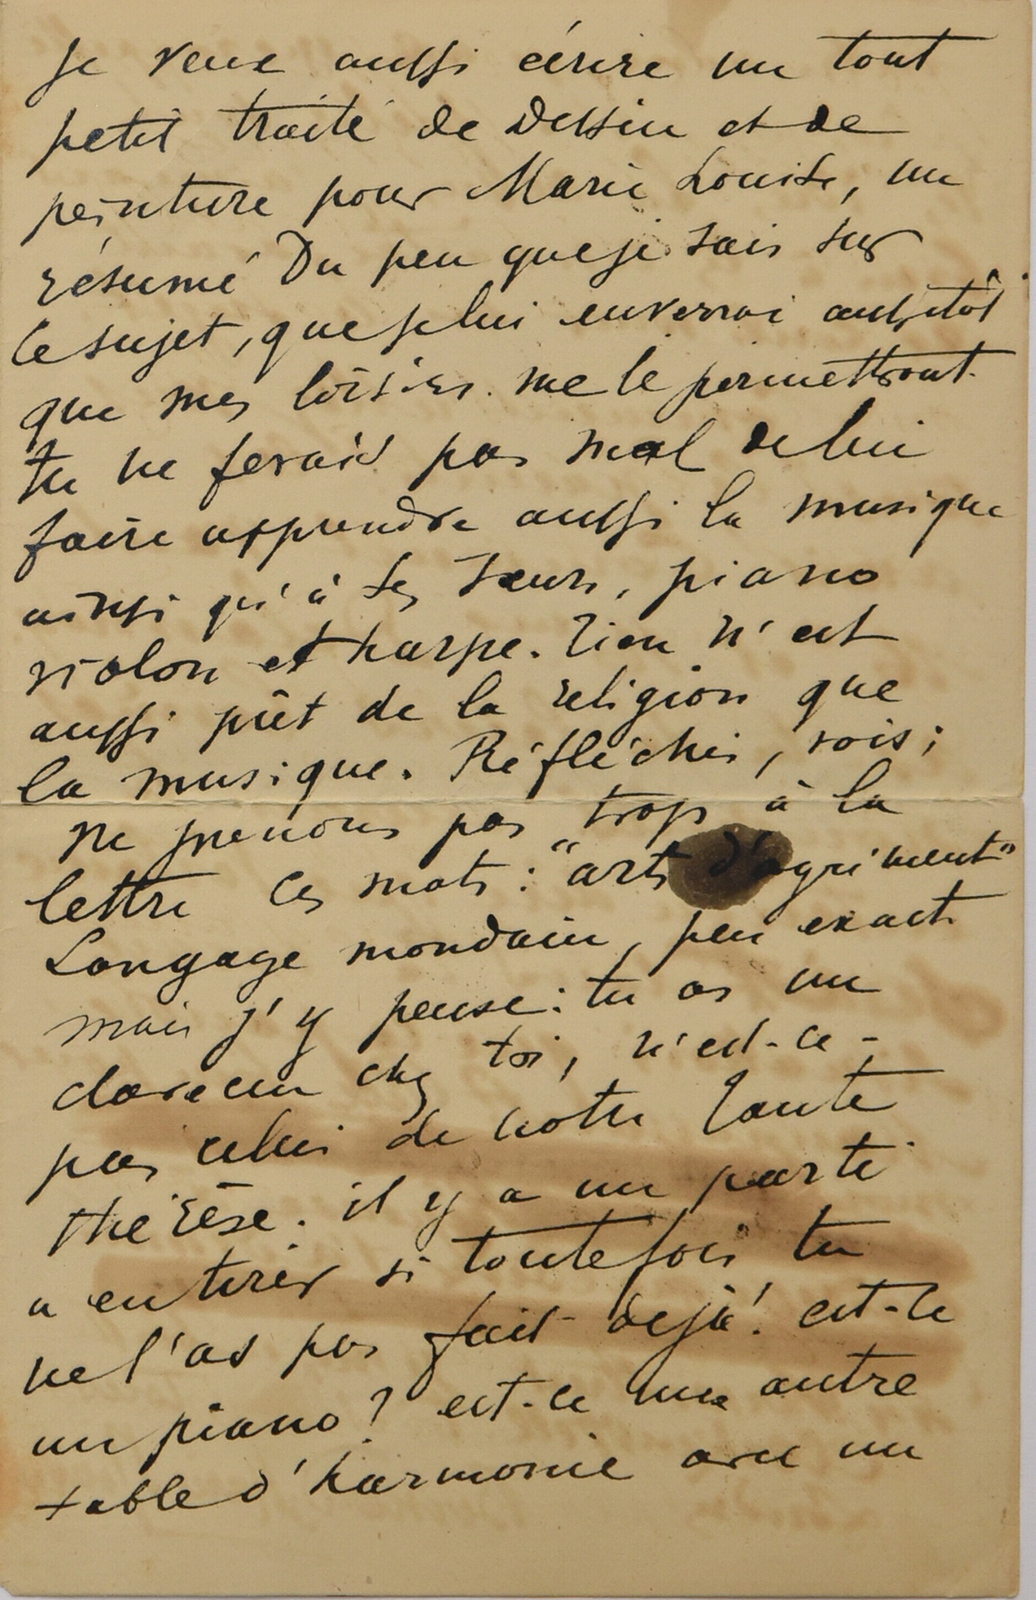 Je veux aussi écrire un tout
petit traité de Dessin et de
peinture pour Marie Louise, un
résumé Du peu que je sais sur
le sujet, que je lui enverrai aussitôt
que mes loisirs me le permettront.
tu ne ferais pas mal de lui
faire apprendre aussi la musique
ainsi qu'à ses sœurs, piano
violon et harpe. rien n'est
aussi près de la religion que
la musique. Réfléchis, vois;
ne prenons pas trop à la
lettre ces mots: "arts d'agrément"
Langage mondain, peu exact.
mais j'y pense: tu as un
clavecin chez toi, n'est-ce-
pas celui de notre Tante
thérèse. il y a un parti
a en tirer si toutefois tu
ne l'as pas fait dejà! est-ce
un piano? est-ce une autre
table d'harmonie avec un